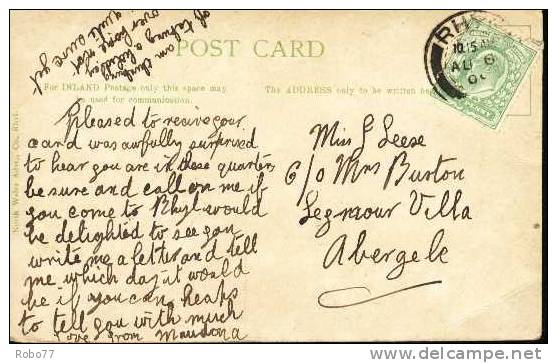 of taking a holiday
am thinking
over here not
quite sure yet
POST CARD
For INLAND Postage only this space may
be used for communication.
The ADDRESS only to be written here
North Wales Advg. Co., Rhyl.
RHYL
10.15 AM
AU 6
Pleased to recive your
card was awfully surprised
to hear you are in these quarters
be sure and call on me if
you come to Rhyl would
be delighted to see you
write me a letter and tell
me which day it would
be if you can, heaps
to tell you with much
love from
Miss G Leese
c/o Mrs Burton
Segmour Villa
Abergele
Robo77
http://www.delcampe.net